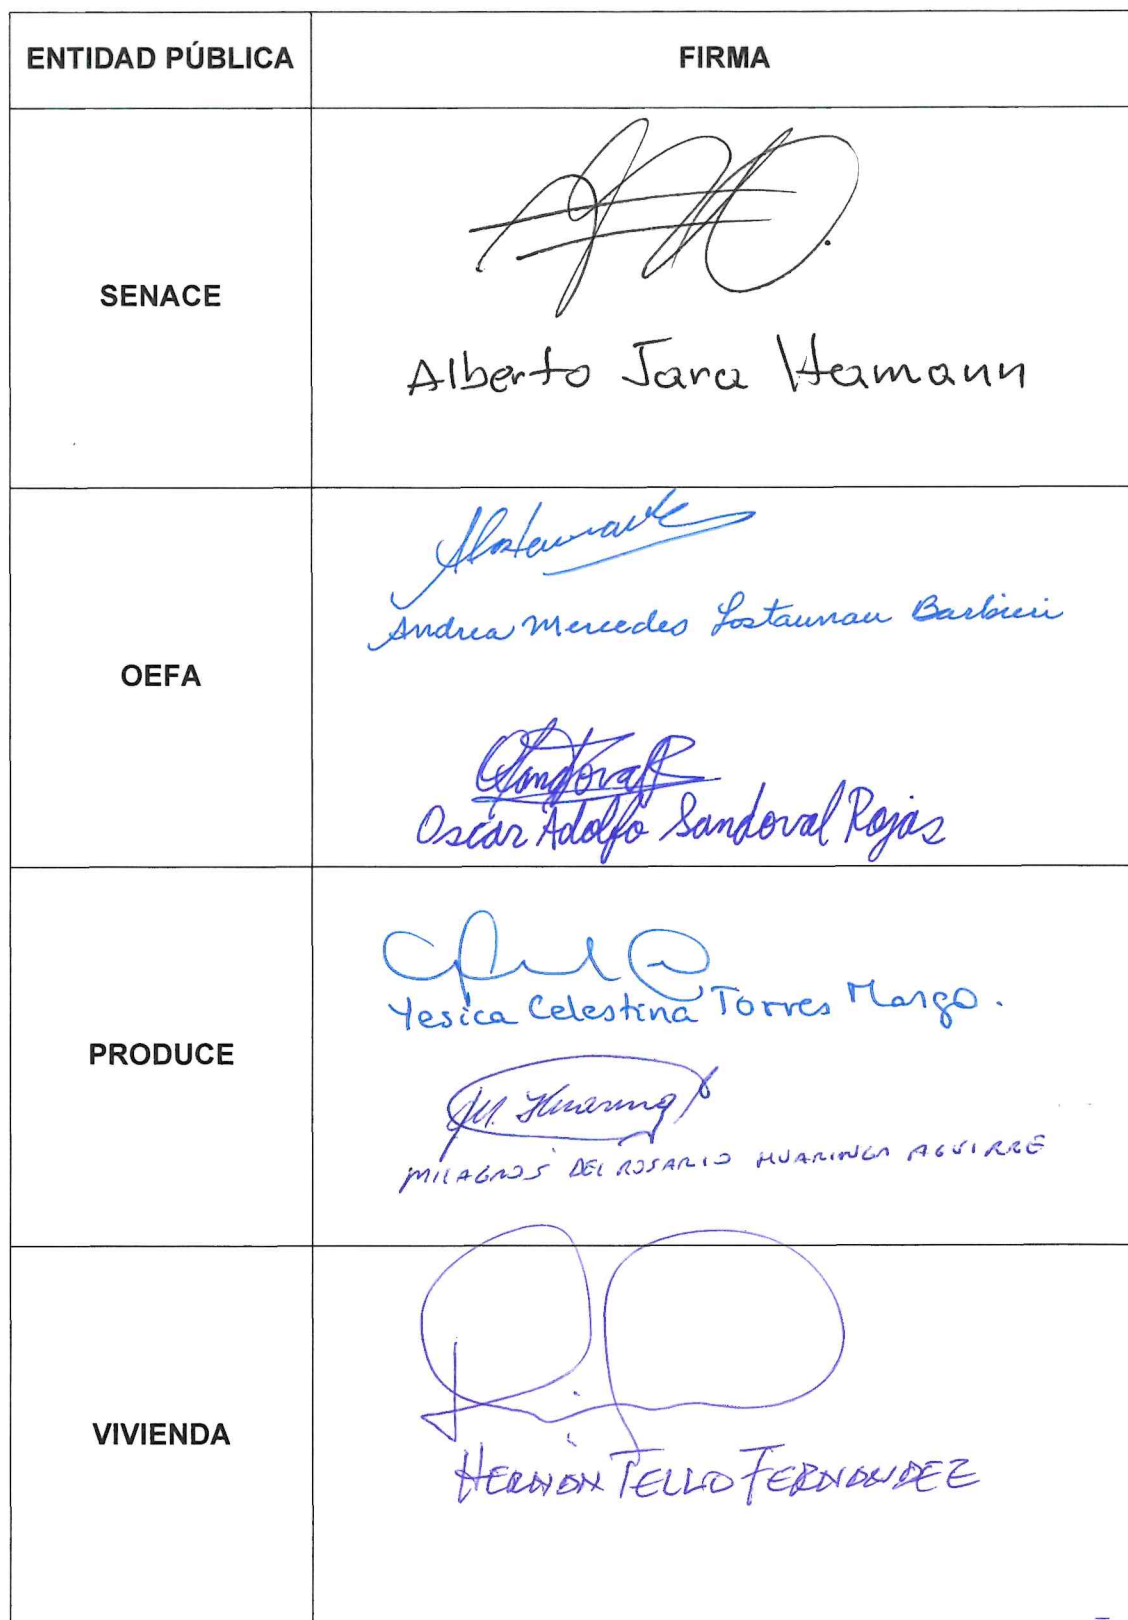 ENTIDAD PÚBLICA
FIRMA
SENACE
Alberto Jara Hamann
OEFA
Andrea Mercedes Lostaunau Barbieri
OSandovalR
Oscar Adolfo Sandoval Rojas
PRODUCE
Yesica Celestina Torres
M. Huaringa
MILAGROS DEL ROSARIO HUARINGA AGUIRRE
VIVIENDA
HERNÁN TELLO FERNANDEZ